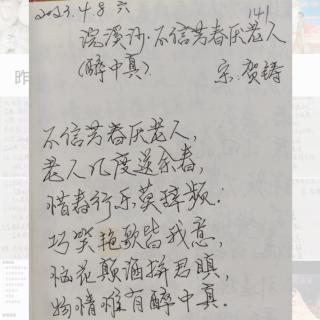 2023.4.8 六
141
浣溪沙·不信芳春厌老人
(醉中真)
宋:贺铸
不信芳春厌老人,
老人几度送余春,
惜春行乐莫辞频:
巧笑艳歌皆我意,
恼花颠酒拼君瞋,
物情惟有醉中真.